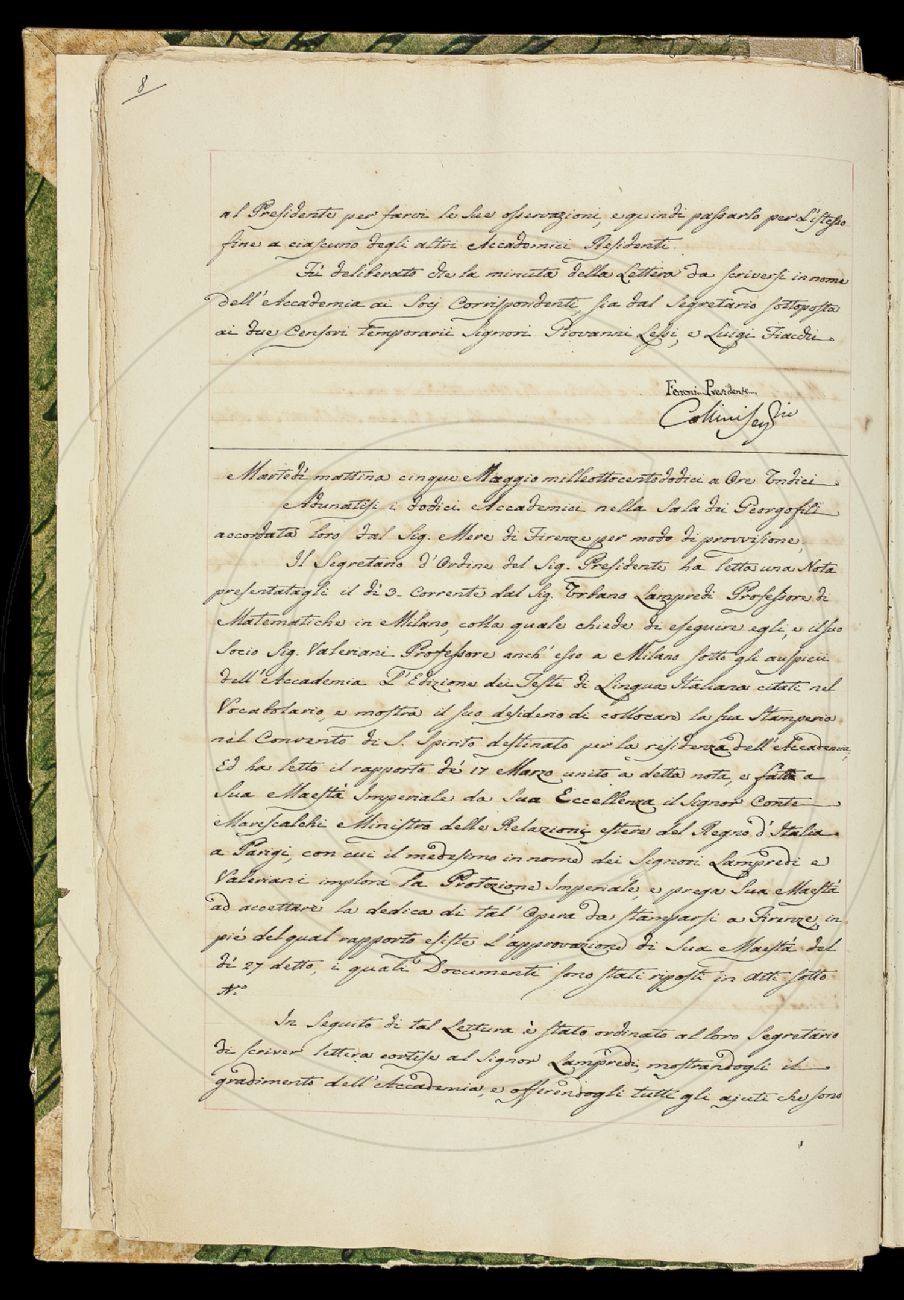 8
al Presidente per farvi le sue osservazioni, e quindi passarlo per l'istesso
fine a ciascuno degli altri Accademici Residenti
Fù deliberato che la minuta della Lettera da scriversi in nome
dell'Accademia ai Socj Corrispondenti, sia dal Segretario sottoposta
ai due Censori temporarii Signori Giovanni Lessi, e Luigi Fiacchi.
Ferroni Presidente
Collini Seg.rio
Martedì mattina cinque Maggio milleottocentododici a Ore Undici
Adunatisi i dodici Accademici nella Sala dei Georgofili
accordata loro dal Sig. Mere di Firenze per modo di provvisione,
Il Segretario d'Ordine del Sig. Presidente ha letta una Nota
presentatagli il dì 3. corrente dal Sig. Urbano Lampredi Professore di
Matematiche in Milano, colla quale chiede di eseguire egli, e il suo
Socio Sig. Valeriani Professore anch'esso a Milano sotto gli auspicii
dell'Accademia L'Edizione dei Testi di Lingua Italiana citati nel
Vocabolario, e mostra il suo desiderio di collocare la sua Stamperia
nel Convento di S. Spirito destinato per la residenza dell'Accademia,
Ed ha letto il rapporto de' 17 Marzo unito a detta nota, e fatto a
Sua Maestà Imperiale da Sua Eccellenza il Signor Conte
Marescalchi Ministro delle Relazioni estere del Regno d'Italia
a Parigi, con cui il medesimo in nome dei Signori Lampredi e
Valeriani implora la Protezione Imperiale, e prega Sua Maestà
ad accettare la dedica di tal'Opera da stamparsi a Firenze, in
piè del qual rapporto esiste L'approvazione di Sua Maestà del
dì 27 detto, i quali Documenti sono stati riposti in Atti sotto
N.o
In Seguito di tal Lettura è stato ordinato al loro Segretario
di scriver lettera cortese al Signor Lampredi, mostrandogli il
gradimento dell'Accademia, e offerendogli tutti gli ajuti che sono